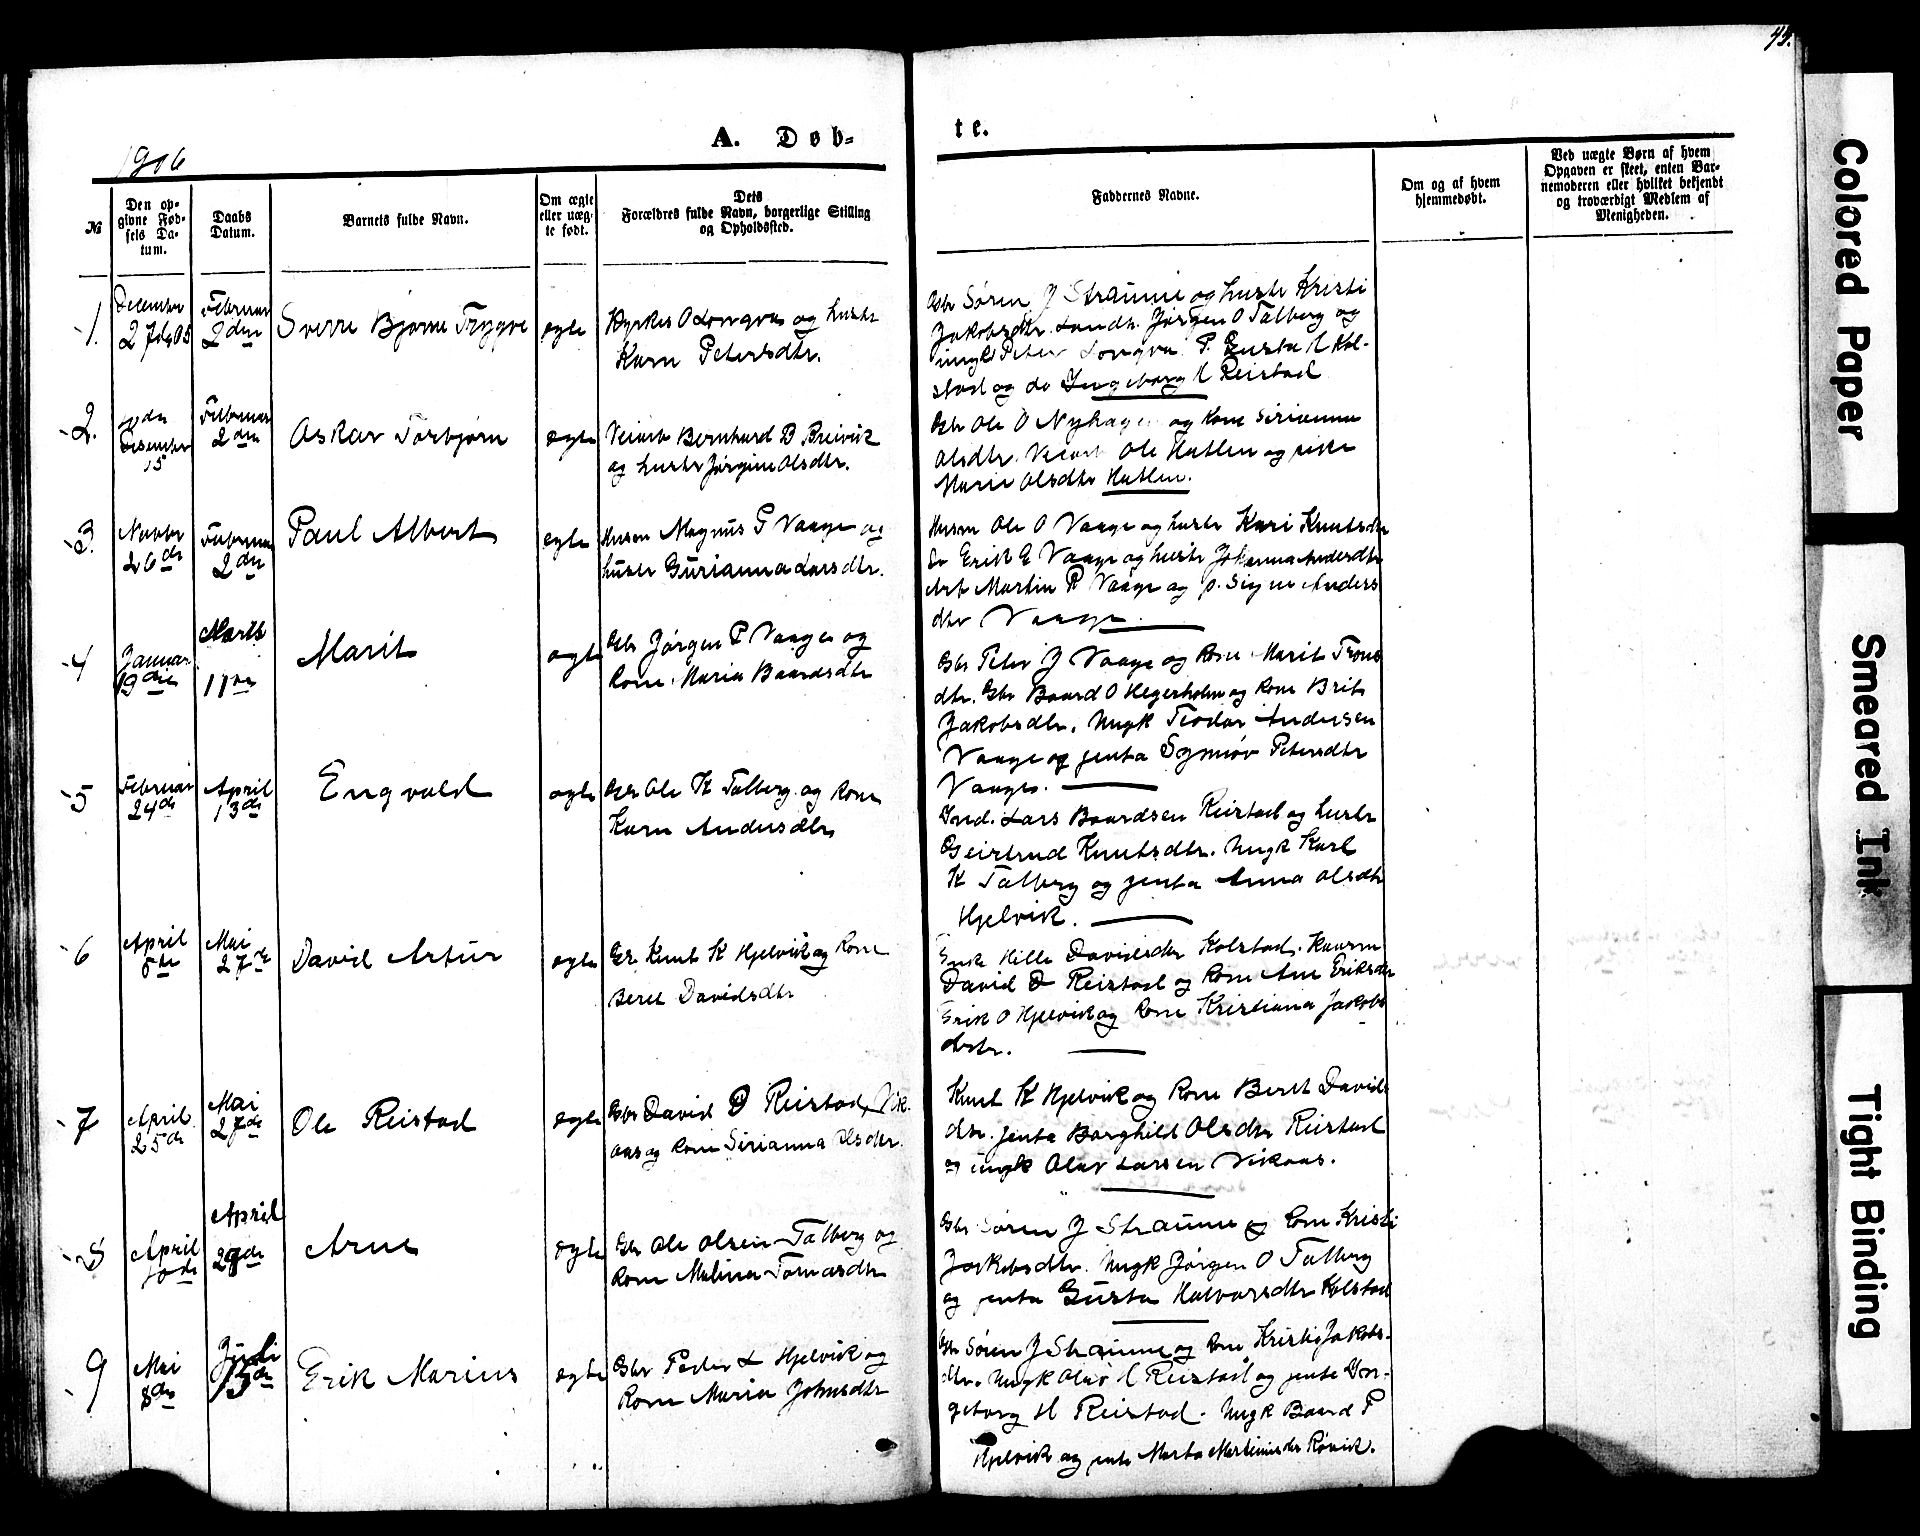 44.
1906
A. Døb-
te.
№
Den op-
givne Fød-
sels Da-
tum.
Daabs
Datum.
Barnets fulde Navn.
Om ægte
eller uæg-
te født.
Dets
Forældres fulde Navn, borgerlige Stilling
og Opholdssted.
Faddernes Navne.
Om og af hvem
hjemmedøbt.
Ved uægte Børn af hvem
Opgaven er skeet, enten Bar-
nemoderen eller hvilket bekjendt
og troværdigt Medlem af
Menigheden.
1.
December
27de 05
Februar
2den
Sverre Bjarne Trygve
ægte
O Longva og hustr
Karn Petersdtr.
Gbr Søren J Straume og hustr Kristi
Jakobsdtr. Landh. Jørgen O Talberg og
ungk Peter Longva. P. Gusta H Kol-
stad og do Ingeborg H Reistad
2.
Desember
15
Februar
2den
Askar Torbjørn
ægte
Bernhard B Breivik
og hustr Jørgine Olsdtr.
Gbr Ole O Nyhagen og kone Sirianna
Olsdtr. Ole Hatlen og
Marie Olsdtr Hatlen.
3.
Novbr
26de
Februar
2den
Paul Albert
ægte
Husm Magnus P Vaage og
hustr Gurianna Larsdtr.
Husm Ole O Vaage og hustr Kari Knutsdtr
Erik E Vaage og hustr Johanna Andersdtr
Arb Martin R Vaage og p. Signe Anders
dtr Vaage.
4
Januar
19den
Marts
11te
Marit
ægte
Gbr Jørgen P Vaage og
kone Maria Baardsdtr
Gbr Peter J Vaage og kone Marit Trons
dtr. Gbr Baard O Hegerholm og kone Brit
Jakobsdtr. Ungk Teodor Andersen
Vaage og jenta Synnøv Petersdtr
Vaage.
5
Februar
24de
April
13de
Engvald
ægte
Gbr Ole K Talberg og kone
Karn Andersdtr
Ind. Lars Baardsen Reistad og hustr
Geirtrud Knutsdtr. Ungk Karl
K Talberg og jenta Anna Olsdtr
Hjelvik.
6
April
5te
Mai
27de
David Artur
ægte
Gbr Knut K Hjelvik og kone
Beret Davidsdtr
Enke Hille Davidsdtr Kolstad. Kaarm
David D Reistad og kone Ane Eriksdtr
Erik O Hjelvik og kone Kristiana Jakobs
dtr.
7
April
25de
Mai
27de
Ole Reistad
ægte
Gbr David D Reistad, Vik-
aas og kone Sirianna Olsdtr.
Knut K Hjelvik og kone Beret Davids
dtr. Jenta Borghild Olsdtr Reistad
og ungk Olav Larsen Vikaas.
8
April
10de
April
29de
Arne
ægte
Gbr Ole Olsen Talberg og
kone Malina Tomasdtr
Gbr Søren J Straume og kone Kristi
Jakobsdtr. Ungk Jørgen O Talberg
og jenta Gusta Halvarsdtr Kolstad
9
Mai
8de
Juli
15de
Erik Marius
ægte
Gbr Peder L Hjelvik og
kone Maria Johnsdtr
Gbr Søren J Straume og kone Kristi Jakobs-
dtr. Ungk Olav H Reistad og jenta In-
geborg H Reistad. Ungk Baard P
Hjelvik og jenta Marta Martinusdtr Røvik.
Colored Paper
Smeared Ink
Tight Binding